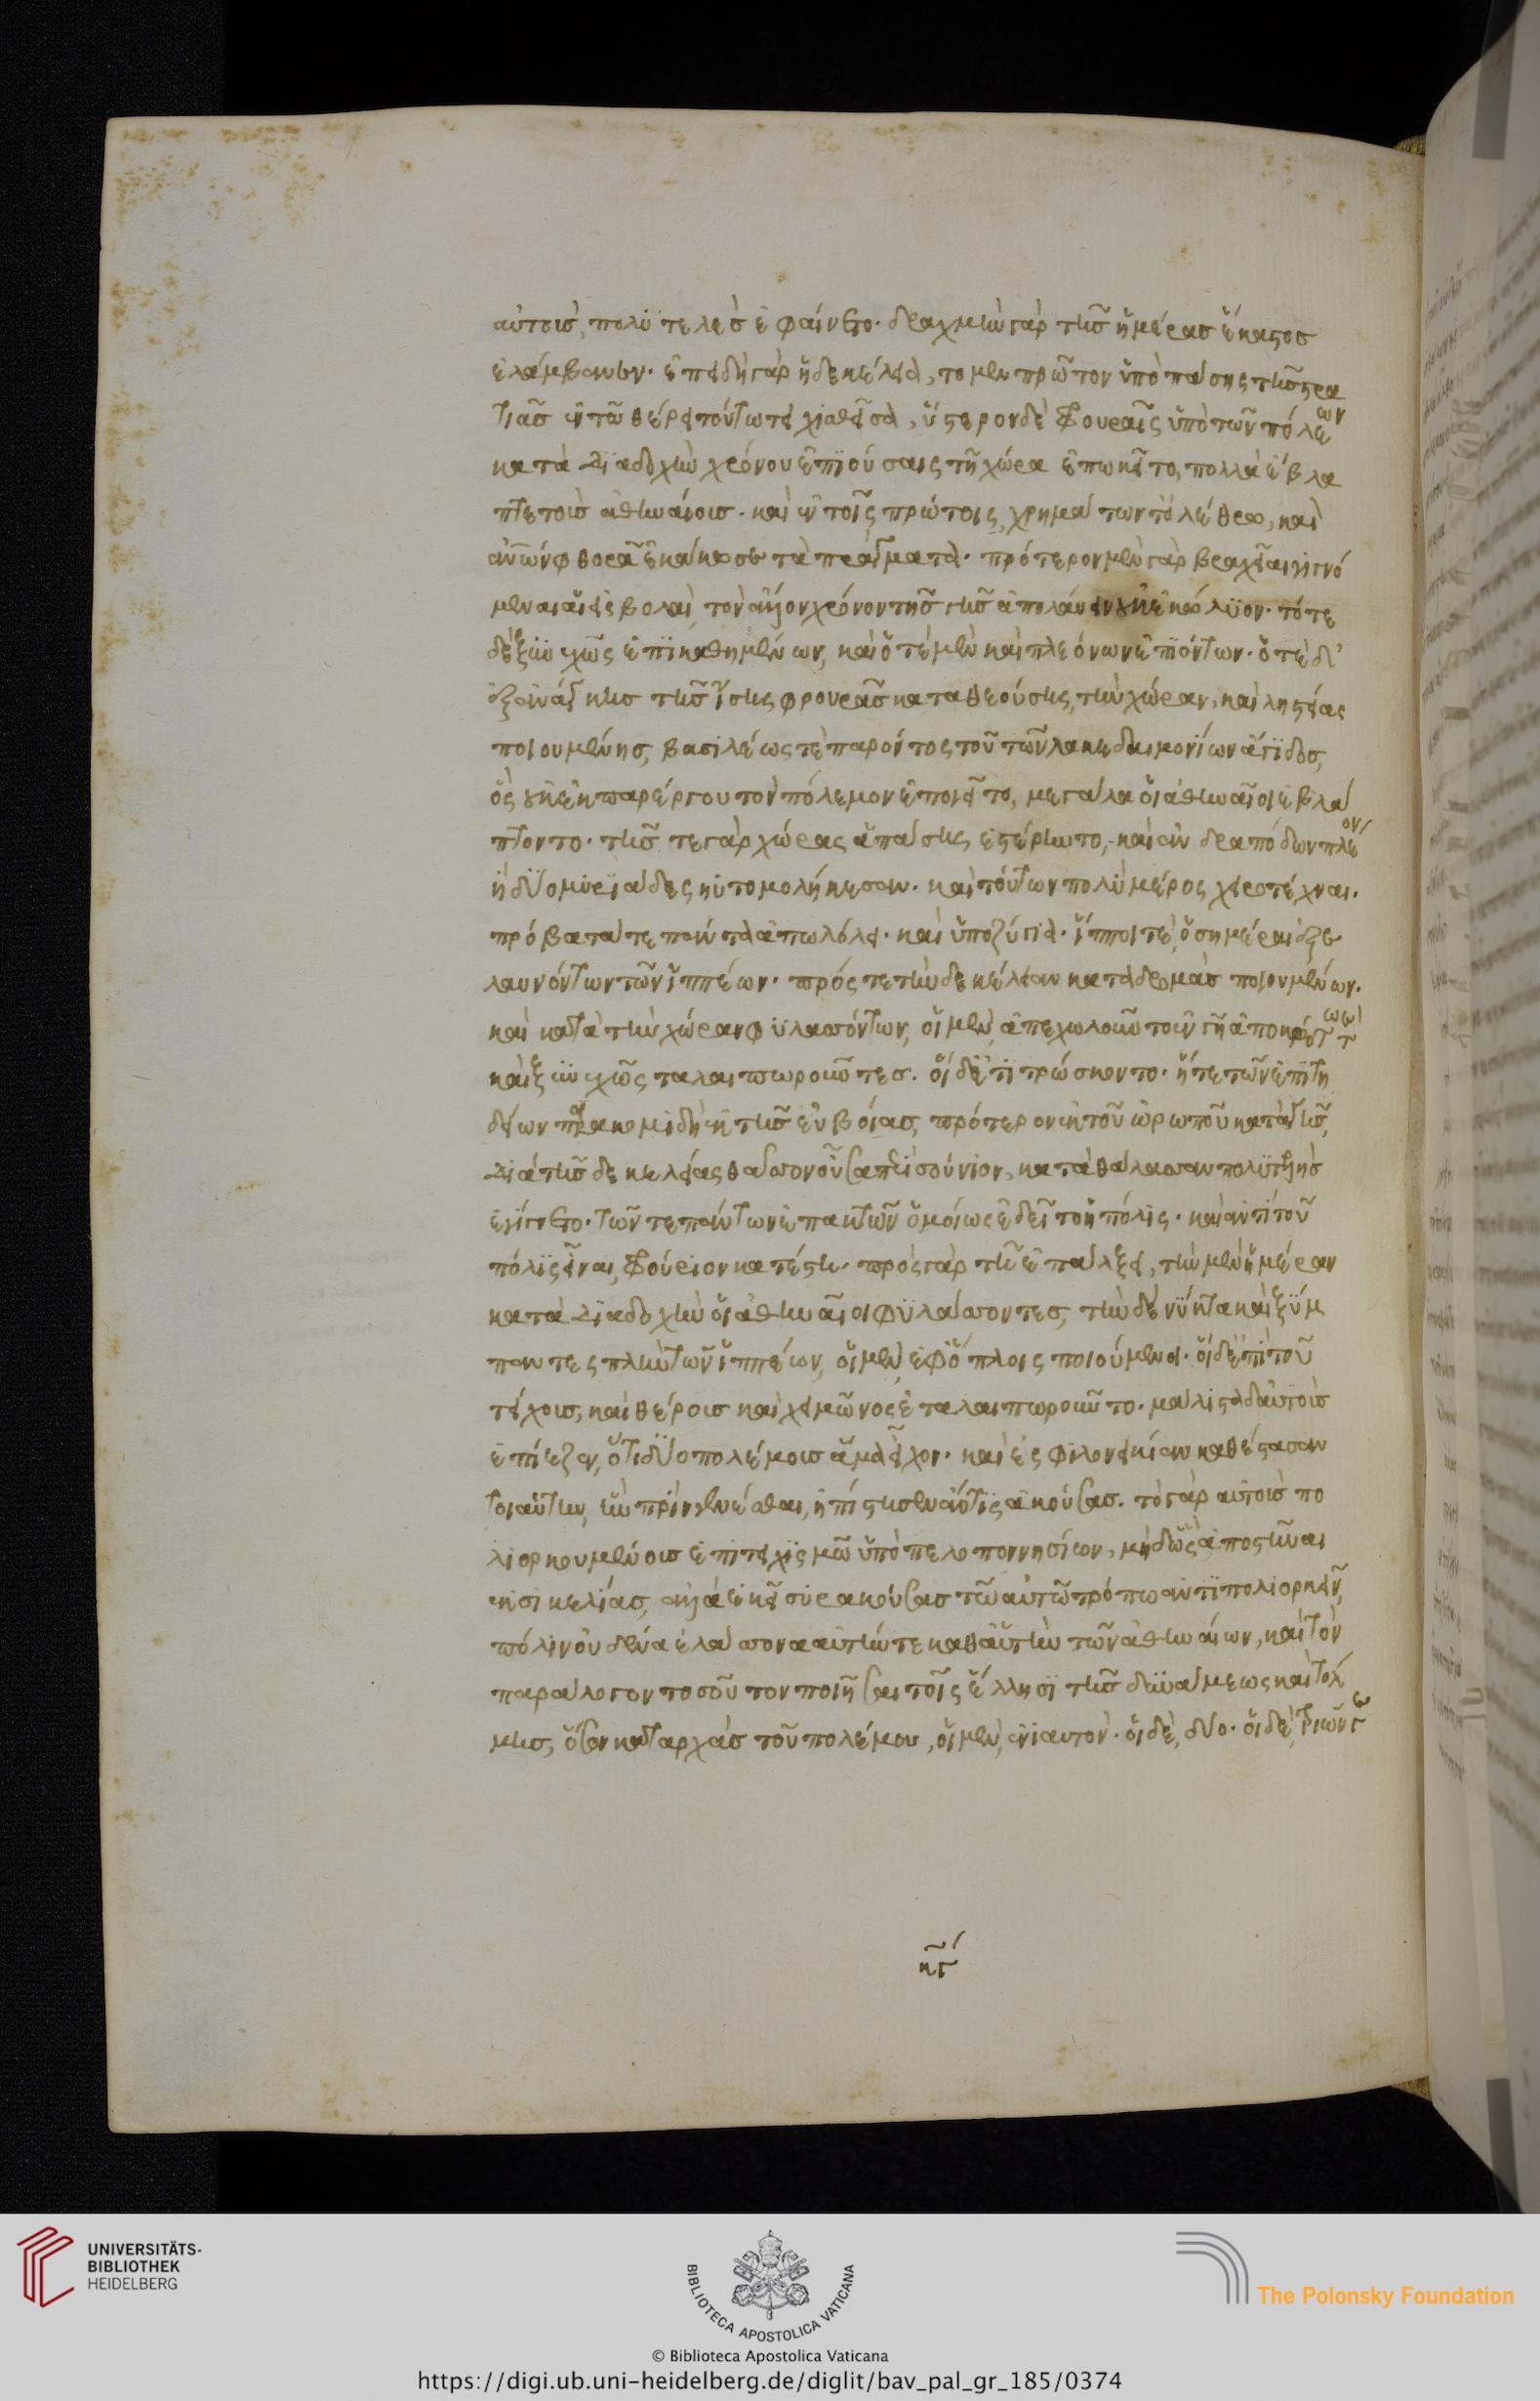 αὐτοὺσ, πολὺ τελεὸσ ἐφαίνετο. δραχμὴν γὰρ τῆσ ἡμέρασ ἕκαστοσ
ἐλάμβανεν. ἐπειδὴ γὰρ ἡ δεκέλεια, το μὲν πρῶτον ὑπὸ πάσης τῆσ στρα
τιᾶσ ἐν τῶ θέρει τούτω τειχισθεῖσα, ὕστερον δὲ φρουραῖς ὑπὸ τῶν πόλεων
κατὰ διαδοχὴν χρόνου ἐπιούσαις τῆ χώρα ἐπωκεῖτο, πολλὰ ἔβλα
πτε τοὺσ ἀθηναίουσ. καὶ ἐν τοῖς πρώτοις χρημάτων τ' ὀλέθρω, καὶ
ἀνῶν φθορᾶ ἐκάκωσε τὰ πράγματα. πρότερον μὲν γὰρ βραχεῖαι γιγνό
μεναι αἱ ἐσβολαὶ, τὸν ἄλλον χρόνον τῆσ γῆσ ἀπολαύειν οὐκ ἐκώλυον. τότε
δὲ ξυνεχῶς ἐπικαθημένων, καὶ ὁτὲ μὲν καὶ πλεόνων ἐπιόντων. ὁτὲ δ'
ἐξ ἀνάγκησ τῆσ ἴσης φρουρᾶσ καταθεούσης, τὴν χώραν, καὶ ληστείας
ποιουμένησ, βασιλέως τὲ παρόντος τοῦ τῶν λακεδαιμονίων ἄγιδοσ,
ὃς οὐκ ἐκ παρέργου τὸν πόλεμον ἐποιεῖτο, μεγάλα οἱ ἀθηναῖοι ἐβλά
πτοντο. τῆσ τε γὰρ χώρας ἁπάσης ἐστέρηντο, καὶ ἀνδραπόδων πλέον
ἢ δύο μυριάδες ηὐτομολήκεσαν. καὶ τούτων πολὺ μέρος χειροτέχναι.
πρόβατά τε πάντα ἀπωλώλει. καὶ ὑποζύγια. ἵπποι τὲ, ὁσημέραι ἐξε
λαυνόντων τῶν ἱππέων. πρός τε τὴν δεκέλειαν καταδρομὰσ ποιουμένων.
καὶ κατὰ τὴν χώραν φυλασσόντων, οἱ μὲν, ἀπεχωλοῦντο ἐν γῆ ἀποκρότω τε
καὶ ξυνεχῶς ταλαιπωροῦντεσ. οἱ δ' ἐτιτρώσκοντο. ἥ τε τῶν ἐπιτη
δείων παρακομιδὴ ἐκ τῆσ εὐβοίασ, πρότερον ἐκ τοῦ ὠρωποῦ κατὰ γῆσ,
διὰ τῆσ δεκελείας θάσσον οὖσα περὶ σούνιον, κατὰ θάλασσαν πολυτελὴσ
ἐγίγνετο. τῶν τε πάντων ἐπακτῶν ὁμοίως ἐδεῖτο ἡ πόλις. καὶ ἀντὶ τοῦ
πόλις εἶναι, φρούριον κατέστη. πρὸς γὰρ τῆ ἐπάλξει, τὴν μὲν ἡμέραν
κατὰ διαδοχὴν οἱ ἀθηναῖοι φυλάσσοντεσ, τὴν δὲ νύκτα καὶ ξύμ
παντες πλὴν τῶν ἱππέων, οἱ μὲν, ἐφ' ὅπλοις ποιούμενοι. οἱ δ' ἐπὶ τοῦ
τείχουσ, καὶ θέρουσ καὶ χειμῶνος ἐταλαιπωροῦντο. μάλιστα δ' αὐτοὺσ
ἐπίεζεν, ὅτι δύο πολέμουσ ἅμα εἶχον. καὶ ἐς φιλονεικίαν καθέστασαν
τοιαύτην, ἣν πρὶν γενέσθαι, ἠπίστησεν ἄν τις ἀκούσασ. τὸ γὰρ αὐτοὺσ πο
λιορκουμένουσ ἐπιτειχισμῶ ὑπὸ πελοποννησίων, μηδ' ὣς ἀποστῆναι
ἐκ σικελίασ, ἀλλὰ ἐκεῖ συρακούσασ τῶ αὐτῶ τρόπω ἀντιπολιορκεῖν,
πόλιν οὐδένα ἐλάσσονα αὐτήν τε καθ' αὑτὴν τῶν ἀθηναίων, καὶ τὸν
παράλογον τοσοῦτον ποιῆσαι τοῖς ἕλλησι τῆσ δυνάμεως καὶ τόλ
μησ, ὅσον κατ' ἀρχὰσ τοῦ πολέμου, οἱ μὲν, ἐνιαυτὸν. οἱ δὲ, δύο. οἱ δὲ, τριῶν γε
κγ
UNIVERSITÄTS-
BIBLIOTHEK
HEIDELBERG
BIBLIOTECA APOSTOLICA VATICANA
The Polonsky Foundation
© Biblioteca Apostolica Vaticana
https://digi.ub.uni-heidelberg.de/diglit/bav_pal_gr_185/0374